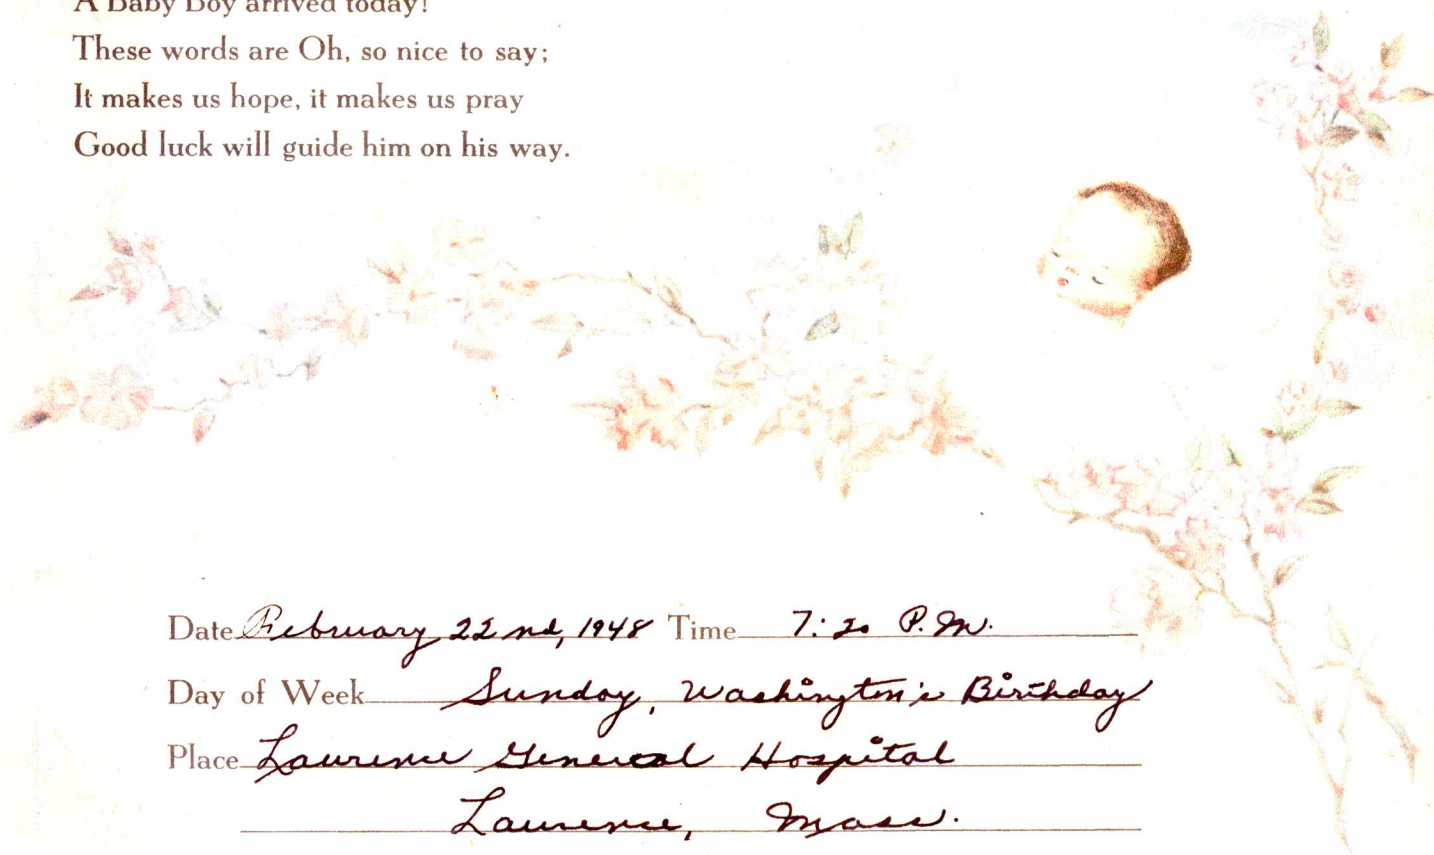 A Baby Boy arrived today!
These words are Oh, so nice to say;
It makes us hope, it makes us pray
Good luck will guide him on his way.
Date February 22nd, 1948 Time 7:20 P.M.
Day of Week Sunday, Washington's Birthday
Place Lawrence General Hospital
Lawrence, Mass.